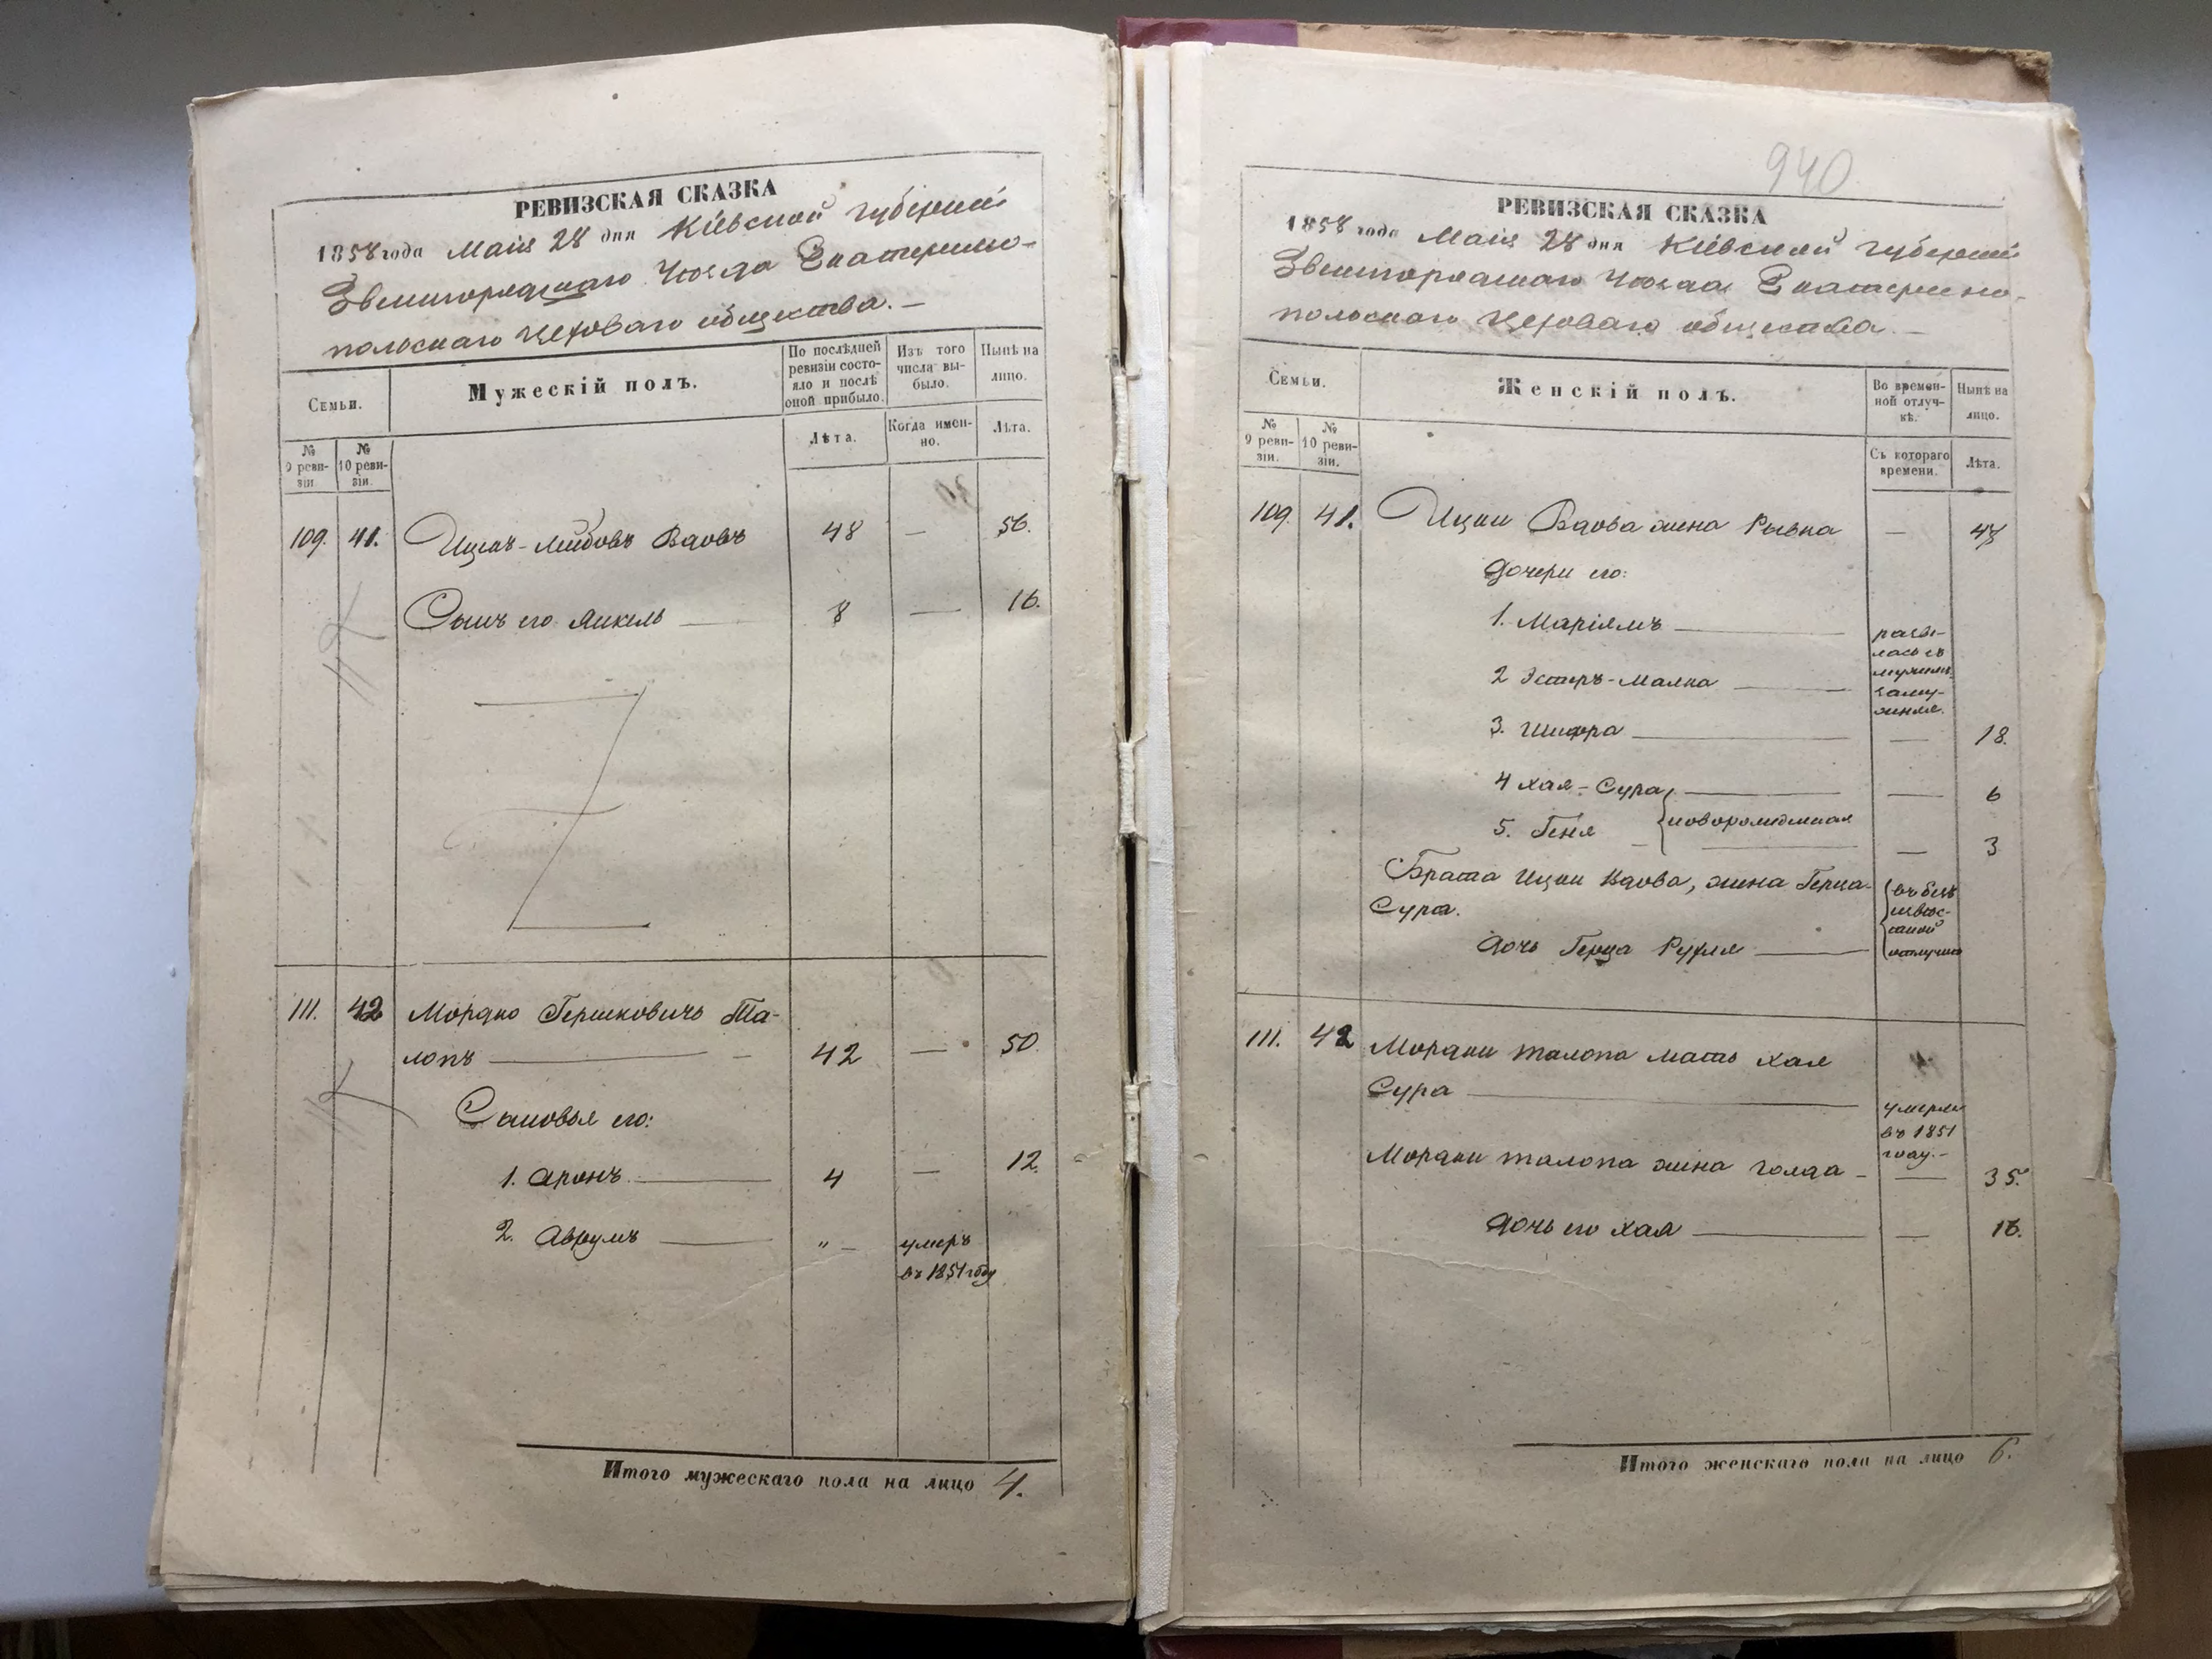 РЕВИЗСКАЯ СКАЗКА
1858 года Маія 28 дня Кіевской губерніи
Звенигородскаго Уѣзда Екатерино-
польскаго Цеховаго общества. —
Семьи.
Мужескій полъ.
По послѣдней ревизіи состо-яло и послѣ оной прибыло.
Изъ того числа вы-было.
Нынѣ на лицо.
№ 9 реви-зіи.
№ 10 реви-зіи.
Лѣта.
Когда имен-но.
Лѣта.
109. 41. Ицко-Лейбовъ Вдовъ 48 — 56.
Сынъ его Янкель — 8 — 16.
111. 42 Мордко Гершковичъ Та-
лопъ — 42 — 50.
Сыновья его:
1. Аронъ — 4 — 12.
2. Аврумъ — " — умеръ
въ 1851 году
Итого мужескаго пола на лицо 4.
940
РЕВИЗСКАЯ СКАЗКА
1858 года Маія 28 дня Кіевской губерніи
Звенигородскаго Уѣзда Екатерино-
польскаго Цеховаго общества. —
Семьи.
Женскій полъ.
Во времен-ной отлуч-кѣ.
Нынѣ на лицо.
№ 9 реви-зіи.
№ 10 реви-зіи.
Съ котораго времени.
Лѣта.
109. 41. Ицки Вдова жена Рывка —
Дочери его:
1. Маріямъ —
2 Эстеръ-Малка —
заму-
жемъ.
3. Шифра — — 18.
4 Хая-Сура — — 6
5. Геня новорожденная — 3
Брата Ицки Вдова, жена Герца-
Сура.
въ без
извѣс-
тной
отлучке
Дочь Герца Рухля —
111. 42 Мордки Талопа мать Хая
Сура —
умерла
въ 1851
году. —
Мордки Талопа жена Голда — — 35.
Дочь его Хая — — 16.
Итого женскаго пола на лицо 6.